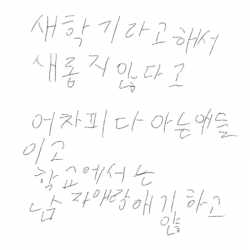 새학기라고해서
새롭지않다고
어차피다아는애들
이고
학교에서는
남자애랑얘기하고
않